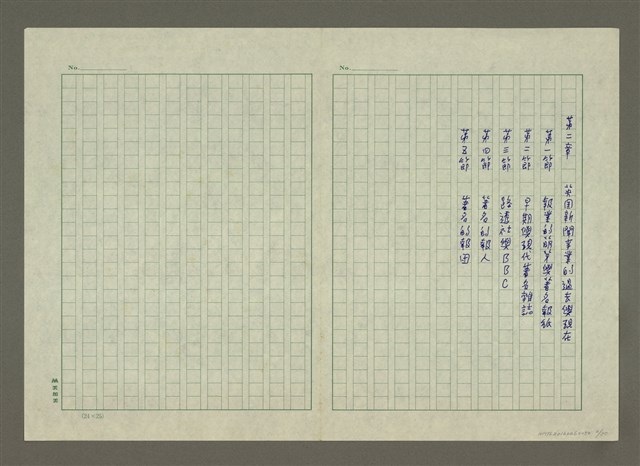 No.
第二章　英国新聞事業的過去與現在
第一節　報業的萌芽與著名報紙
第二節　早期與現代著名雜誌
第三節　路透社與BBC
第四節　著名的報人
第五節　著名的報団
No.